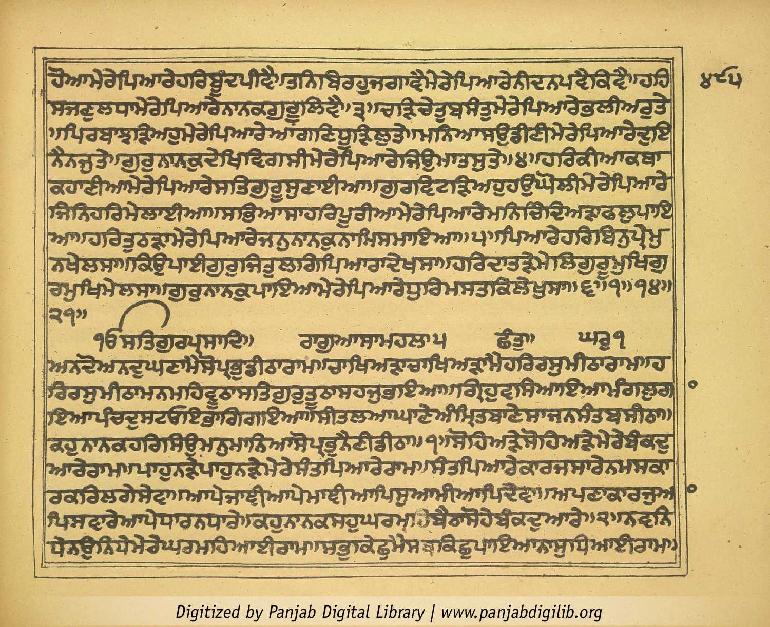 ਹੋਆਮੇਰੇਪਿਆਰੇਹਰਿਬੂੰਦਪੀਵੈ॥ਤਨਿਬਿਰਹੁਜਗਾਵੈਮੇਰੇਪਿਆਰੇਨੀਦਨਪਵੈਕਿਵੈ॥ਹਰਿ
ਸਜਣੁਲਧਾਮੇਰੇਪਿਆਰੇਨਾਨਕਗੁਰੂਲਿਵੈ॥੩॥ਚੜਿਚੇਤੁਬਸੰਤੁਮੇਰੇਪਿਆਰੇਭਲੀਅਰੁਤੇ
॥ਪਿਰਬਾਝੜਿਅਹੁਮੇਰੇਪਿਆਰੇਆਂਗਣਿਧੂੜਿਲੁਤੇ॥ਮਨਿਆਸਉਡੀਣੀਮੇਰੇਪਿਆਰੇਦੁਇ
ਨੈਨਜੁਤੇ॥ਗੁਰੁਨਾਨਕੁਦੇਖਿਵਿਗਸੀਮੇਰੇਪਿਆਰੇਜਿਉਮਾਤਸੁਤੇ॥੪॥ਹਰਿਕੀਆਕਥਾ
ਕਹਾਣੀਆਮੇਰੇਪਿਆਰੇਸਤਿਗੁਰੂਸੁਣਾਈਆ॥ਗੁਰਵਿਟੜਿਅਹੁਹਉਘੋਲੀਮੇਰੇਪਿਆਰੇ
ਜਿਨਿਹਰਿਮੇਲਾਈਆ॥ਸਭਿਆਸਾਹਰਿਪੂਰੀਆਮੇਰੇਪਿਆਰੇਮਨਿਚਿੰਦਿਅੜਾਫਲੁਪਾਇ
ਆ॥ਹਰਿਤੁਠੜਾਮੇਰੇਪਿਆਰੇਜਨੁਨਾਨਕੁਨਾਮਿਸਮਾਇਆ॥੫॥ਪਿਆਰੇਹਰਿਬਿਨੁਪ੍ਰੇਮੁ
ਨਖੇਲਸਾ॥ਕਿਉਪਾਈਗੁਰੁਜਿਤੁਲਗਿਪਿਆਰਾਦੇਖਸਾ॥ਹਰਿਦਾਤੜੇਮੇਲਿਗੁਰੂਮੁਖਿਗੁ
ਰਮੁਖਿਮੇਲਸਾ॥ਗੁਰੁਨਾਨਕੁਪਾਇਆਮੇਰੇਪਿਆਰੇਧੁਰਿਮਸਤਕਿਲੇਖੁਸਾ॥੬॥੧॥੧੪॥
੨੧॥
ੴਸਤਿਗੁਰਪ੍ਰਸਾਦਿ॥ ਰਾਗੁਆਸਾਮਹਲਾ੫ ਛੰਤੁ॥ ਘਰੁ੧
ਅਨਦੋਅਨਦੁਘਣਾਮੈਸੋਪ੍ਰਭੁਡੀਠਾਰਾਮ॥ਚਾਖਿਅੜਾਚਾਖਿਅੜਾਮੈਹਰਿਰਸੁਮੀਠਾਰਾਮ॥ਹ
ਰਿਰਸੁਮੀਠਾਮਨਮਹਿਵੂਠਾਸਤਿਗੁਰੁਤੂਠਾਸਹਜੁਭਇਆ॥ਗ੍ਰਿਹੁਵਸਿਆਇਆਮੰਗਲੁਗ
ਇਆਪੰਚਦੁਸਟਓਇਭਾਗਿਗਇਆ॥ਸੀਤਲਆਘਾਣੇਅੰਮ੍ਰਿਤਬਾਣੇਸਾਜਨਸੰਤਬਸੀਠਾ॥
ਕਹੁਨਾਨਕਹਰਿਸਿਉਮਨੁਮਾਨਿਆਸੋਪ੍ਰਭੁਨੈਣੀਡੀਠਾ॥੧॥ਸੋਹਿਅੜੇਸੋਹਿਅੜੇਮੇਰੇਬੰਕਦੁ
ਆਰੇਰਾਮ॥ਪਾਹੁਨੜੇਪਾਹੁਨੜੇਮੇਰੇਸੰਤਪਿਆਰੇਰਾਮ॥ਸੰਤਪਿਆਰੇਕਾਰਜਸਾਰੇਨਮਸਕਾ
ਰਕਰਿਲਗੇਸੇਵਾ॥ਆਪੇਜਾਞੀਆਪੇਮਾਞੀਆਪਿਸੁਆਮੀਆਪਿਦੇਵਾ॥ਅਪਣਾਕਾਰਜੁਆ
ਪਿਸਵਾਰੇਆਪੇਧਾਰਨਧਾਰੇ॥ਕਹੁਨਾਨਕਸਹੁਘਰਮਹਿਬੈਠਾਸੋਹੇਬੰਕਦੁਆਰੇ॥੨॥ਨਵਨਿ
ਧੇਨਉਨਿਧੇਮੇਰੇਘਰਮਹਿਆਈਰਾਮ॥ਸਭੁਕਿਛੁਮੈਸਭਕਿਛੁਪਾਇਆਨਾਮੁਧਿਆਈਰਾਮ॥
੪੯੫
Digitized by Panjab Digital Library | www.panjabdigilib.org